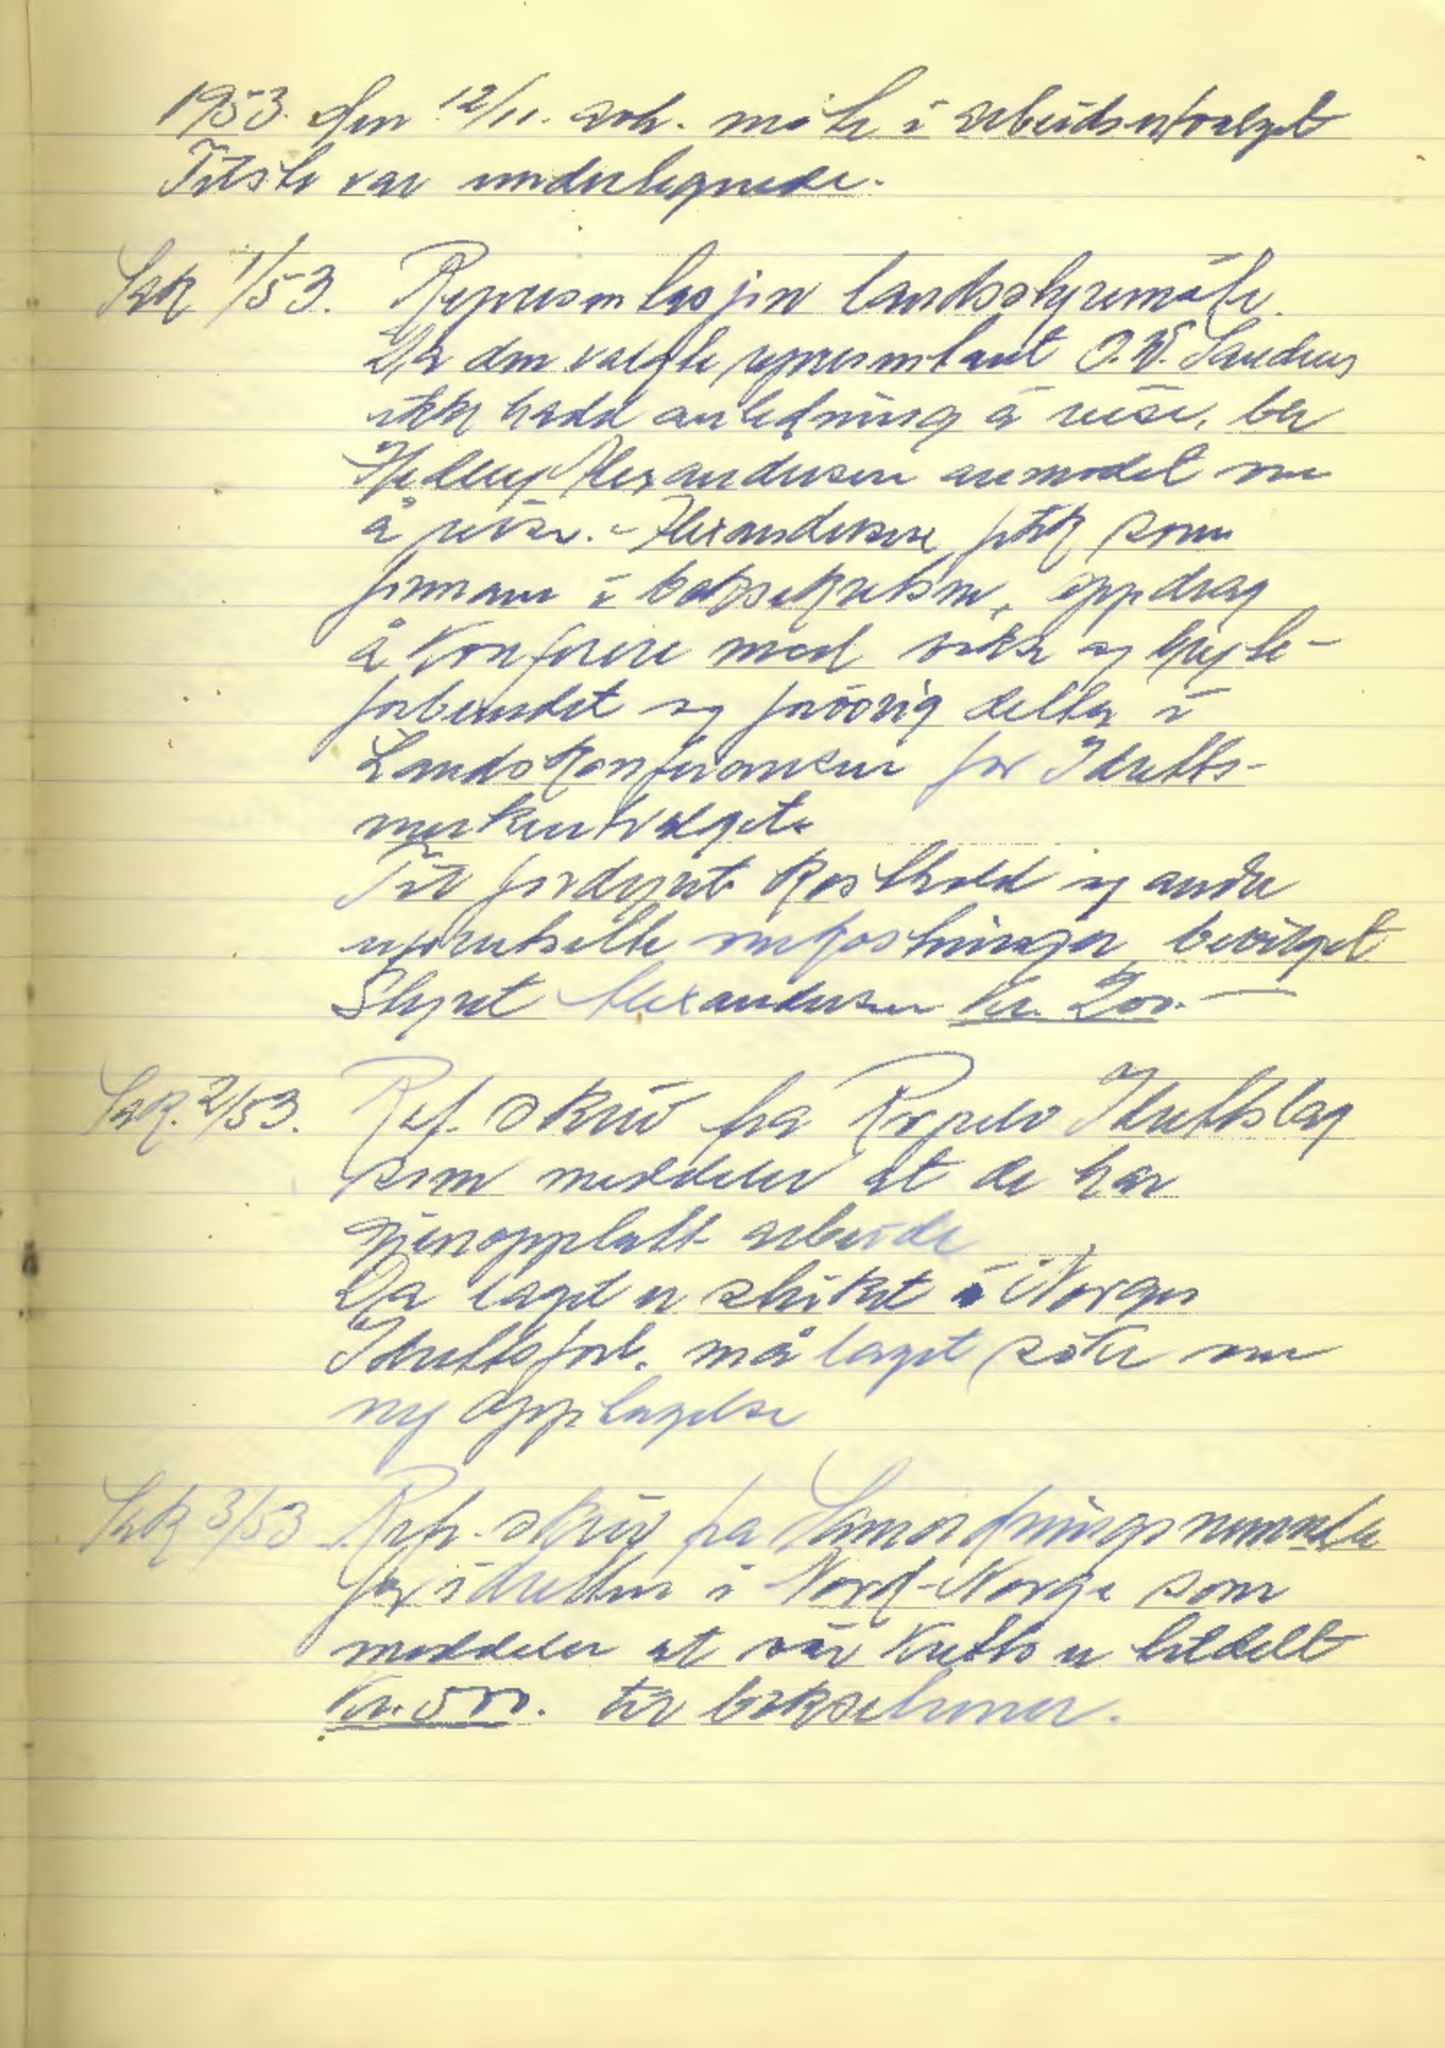 1953. den 12/11. avh. møte i arbeidsutvalget
Tilste var undertegnede.
Sak 1/53. Representasjon landsstyremøte.
Da den valgte representant O.W. Sandnes
ikke hadde anledning å reise, ble
Hedley Alexandersen anmodet om
å reise. - Alexandersen fikk som
formann i boksekretsen, oppdrag
å konferere med bokse og bryte-
forbundet og forövrig delta i
Landskonferansen for Idretts-
merkeutvalget.
Til fordyret kosthold og andre
uforutsette omkostninger, bevilget
Styret Alexandersen kr. 200.-
Sak. 2/53. Ref. skriv fra Idrettslag
som meddeler at de har
gjenopptatt arbeide
Da laget er strøket i Norges
Idrettsforb. må laget søke om
ny opptagelse
Sak 3/53 Ref. skriv fra Samordningsnemnda
for idretten i Nord-Norge som
meddeler at vår krets er tildelt
Kr. 500. til